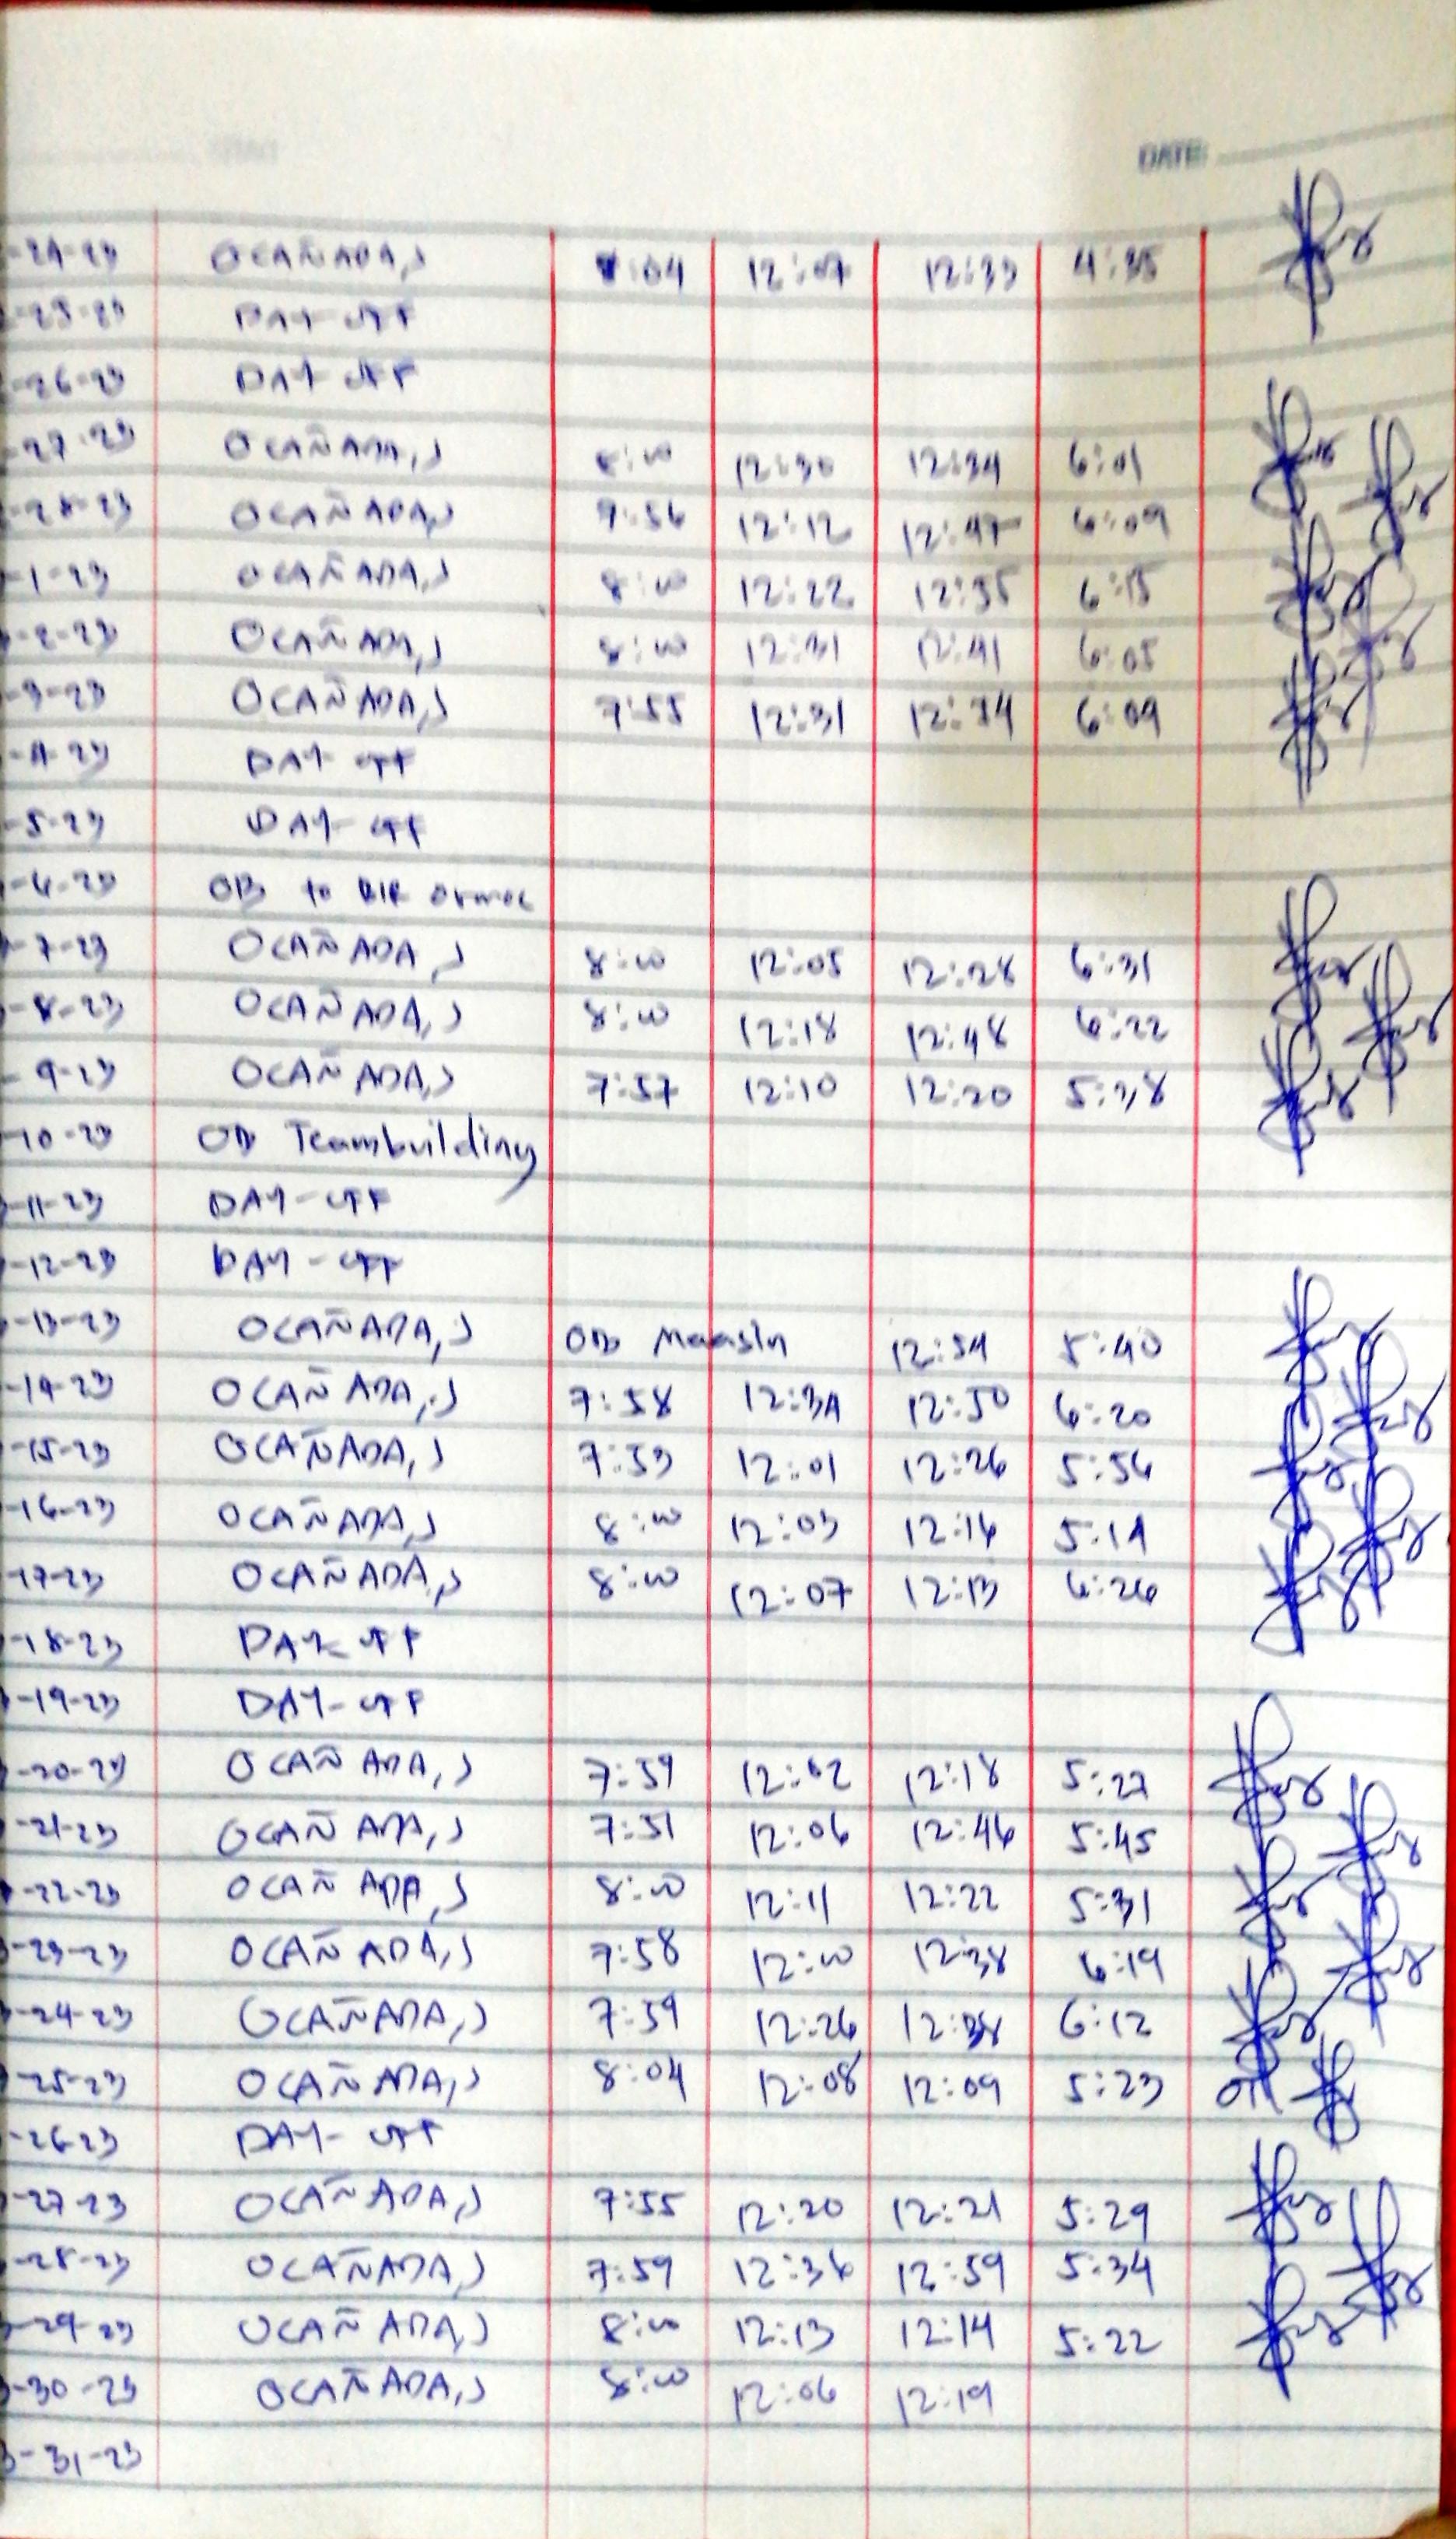 DATE:
-24-23 OCAÑADA,J :04 12:07 12:33 4:35
-25-23 DAY-OFF
-26-23 DAY OFF
-27-23 OCAÑADA,J 8:00 12:30 12:34 6:01
-28-23 OCAÑADA,J 7:56 12:12 12:47 6:09
-1-23 OCAÑADA,J 8:00 12:22 12:35 6:15
-2-23 OCAÑADA,J 8:00 12:31 12:41 6:05
-3-23 OCAÑADA,J 7:55 12:31 12:34 6:09
-4-23 DAY-OFF
-5-23 DAY-OFF
-6-23 OB to BIR Ormoc
-7-23 OCAÑADA,J 8:00 12:05 12:28 6:31
-8-23 OCAÑADA,J 8:00 12:18 12:48 6:22
-9-23 OCAÑADA,J 7:57 12:10 12:20 5:38
-10-23 OB Teambuilding
-11-23 DAY-OFF
-12-23 DAY-OFF
-13-23 OCAÑADA,J OB Maasin 12:54 5:40
-14-23 OCAÑADA,J 7:58 12:34 12:50 6:20
-15-23 OCAÑADA,J 7:53 12:01 12:26 5:56
-16-23 OCAÑADA,J 8:00 12:03 12:16 5:14
-17-23 OCAÑADA,J 8:00 12:07 12:13 6:26
-18-23 DAY-OFF
-19-23 DAY-OFF
-20-23 OCAÑADA,J 7:59 12:02 12:18 5:27
-21-23 OCAÑADA,J 7:51 12:06 12:46 5:45
-22-23 OCAÑADA,J 8:00 12:11 12:22 5:31
-23-23 OCAÑADA,J 7:58 12:00 12:38 6:19
-24-23 OCAÑADA,J 7:59 12:26 12:38 6:12
-25-23 OCAÑADA,J 8:04 12:08 12:09 5:23
-26-23 DAY-OFF
-27-23 OCAÑADA,J 7:55 12:20 12:21 5:29
-28-23 OCAÑADA,J 7:59 12:36 12:59 5:34
-29-23 OCAÑADA,J 8:00 12:13 12:14 5:22
3-30-23 OCAÑADA,J 8:00 12:06 12:19
3-31-23